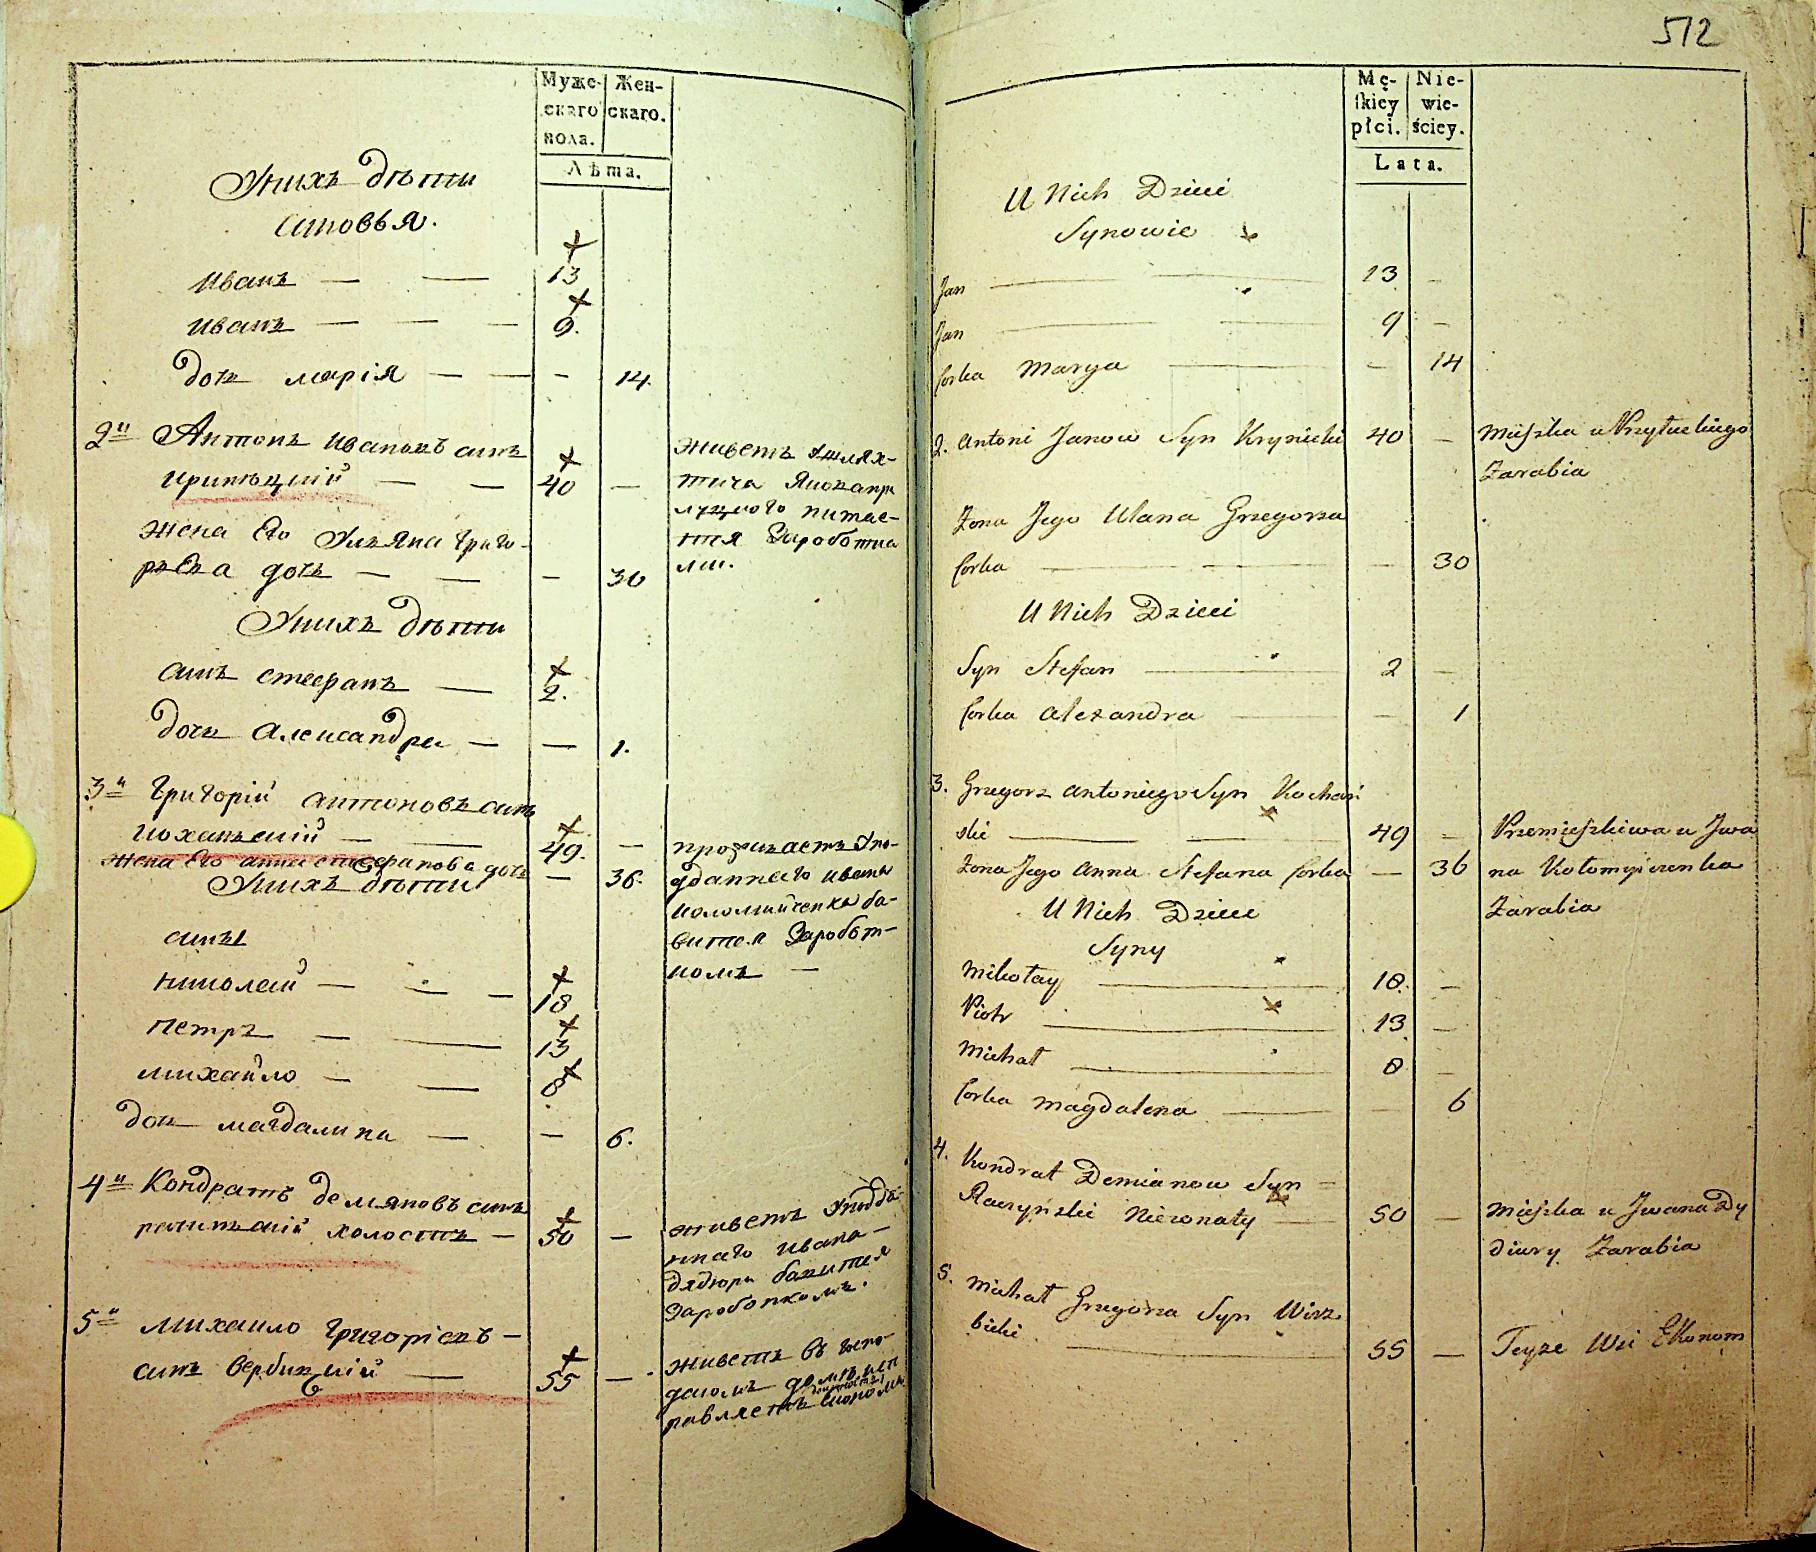 Муже-
скаго
пола.
Жен-
скаго.
Лѣта.
Унихъ дѣти
синовья.
Иванъ — — 13
Иванъ — — — 9.
дочь марія — — — 14.
2й Антонъ Ивановъ синъ
криницкий — — 40 —
живетъ Ушлях-
тича
питае-
тся Заработка
ми.
жена Его Уляна Григо-
рьева дочь — — — 30
Унихъ дѣти
синъ стефанъ — 2.
дочь Александра — — 1.
3й Григорій антоновъ синъ
коханьский — — 49. —
жена Его анна стефанова дочь — 36.
Унихъ дѣти
проживаетъ Упо-
дданнаго ивана
коломийченка ба-
витея Заробот-
комъ —
сины
николай — — — 18
петръ — — 13
михайло — — 8
дочь магдалина — — 6.
4й Кондратъ демяновъ синъ
рачинский холостъ — 50 —
живетъ Уподда-
ннаго ивана
дядюри бавится
Заробопкомъ.
5й михаило григоріевъ —
синъ вербицкий — 55 — .
живетъ въ госпо-
дскомъ домѣ
512
Mę-
skiey
płci.
Nie-
wie-
ściey.
Lata.
U Nich Dzieci
Synowie
Jan — — 13 —
Jan — — 9 —
Corka Marya — — 14
2. Antoni Janow Syn Krynicki 40 — Miészka u Przyłuckiego
Zarabia
Zona Jego Ulana Grzegorza
Corka — — — 30
U Nich Dzieci
Syn Stefan — 2 —
Corka Alexandra — — 1
3. Grzegorz Antoniego Syn Kochań
ski — — 49 — Przemieszkiwa u Jwa
Zona Jego Anna Stefana Corka — 36 na Kołomyiczenka
U Nich Dzieci Zarabia
Syny
Mikołay — 18. —
Piotr — 13 —
Michał — 8 —
Corka Magdalena — — 6
4. Kondrat Demianow Syn —
Raczyński Niezonaty — 50 — Mieszka u Jwana Dy
diury Zarabia
5. Michał Grzegorza Syn Wierz
bicki — 55 — Teyze Wsi Ekonom